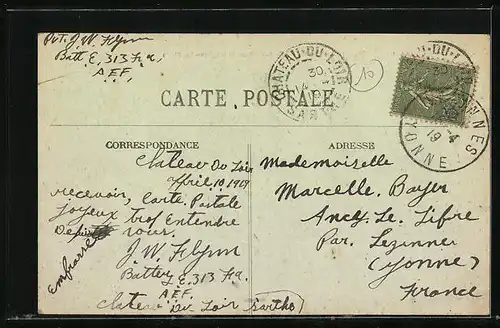 Pvt. J. W. Flynn
Batt E, 313 F.a,
A.E.F.
CHATEAU-DU-LOIR
SARTHE
10
CARTE POSTALE
CORRESPONDANCE
ADRESSE
Chateau Du Loir
april 10, 1919
recevoir, Carte. Postale
Joyeux trof Entendre
vous.
J. W. Flynn
Battery E, 313 F.a.
A.E.F.
Chateau Du Loir Sartho
Embrasse
Mademoiselle
Marcelle, Boyer
Ancy. Le. Lifre
Par. Lezinnes
(Yonne)
France
YONNE